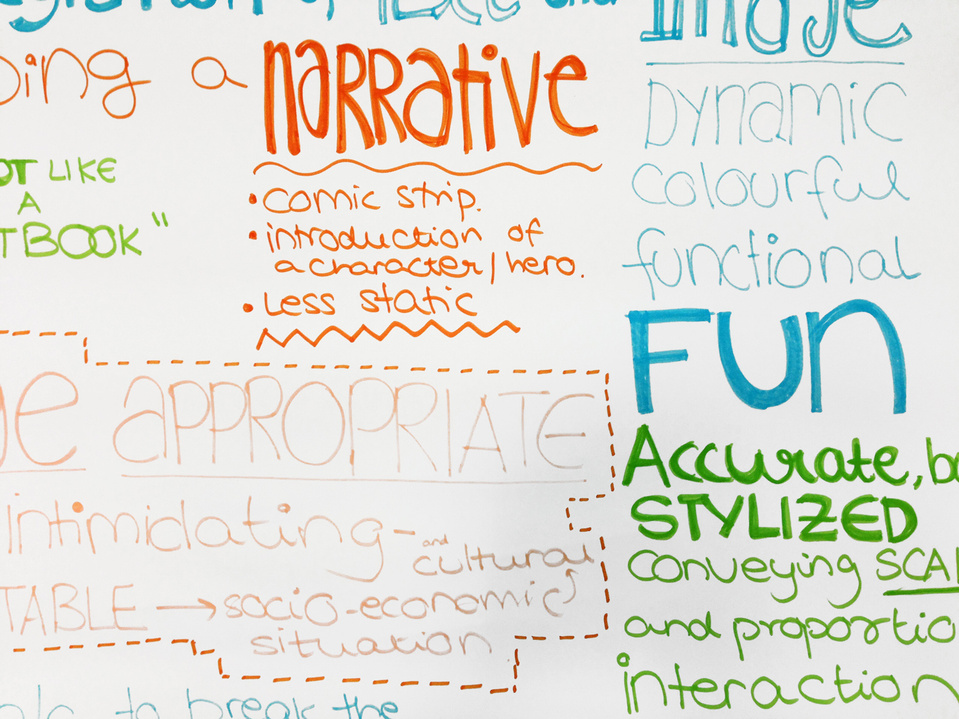 and
Image
a
narrative
• comic strip.
• introduction of
a character/hero.
• Less static
LIKE
A
BOOK"
Dynamic
colourful
functional
Fun
Accurate,
STYLIZED
conveying
and
interaction
APPROPRIATE
intimidating -
and
cultural
TABLE → socio-economic
situation
to break the